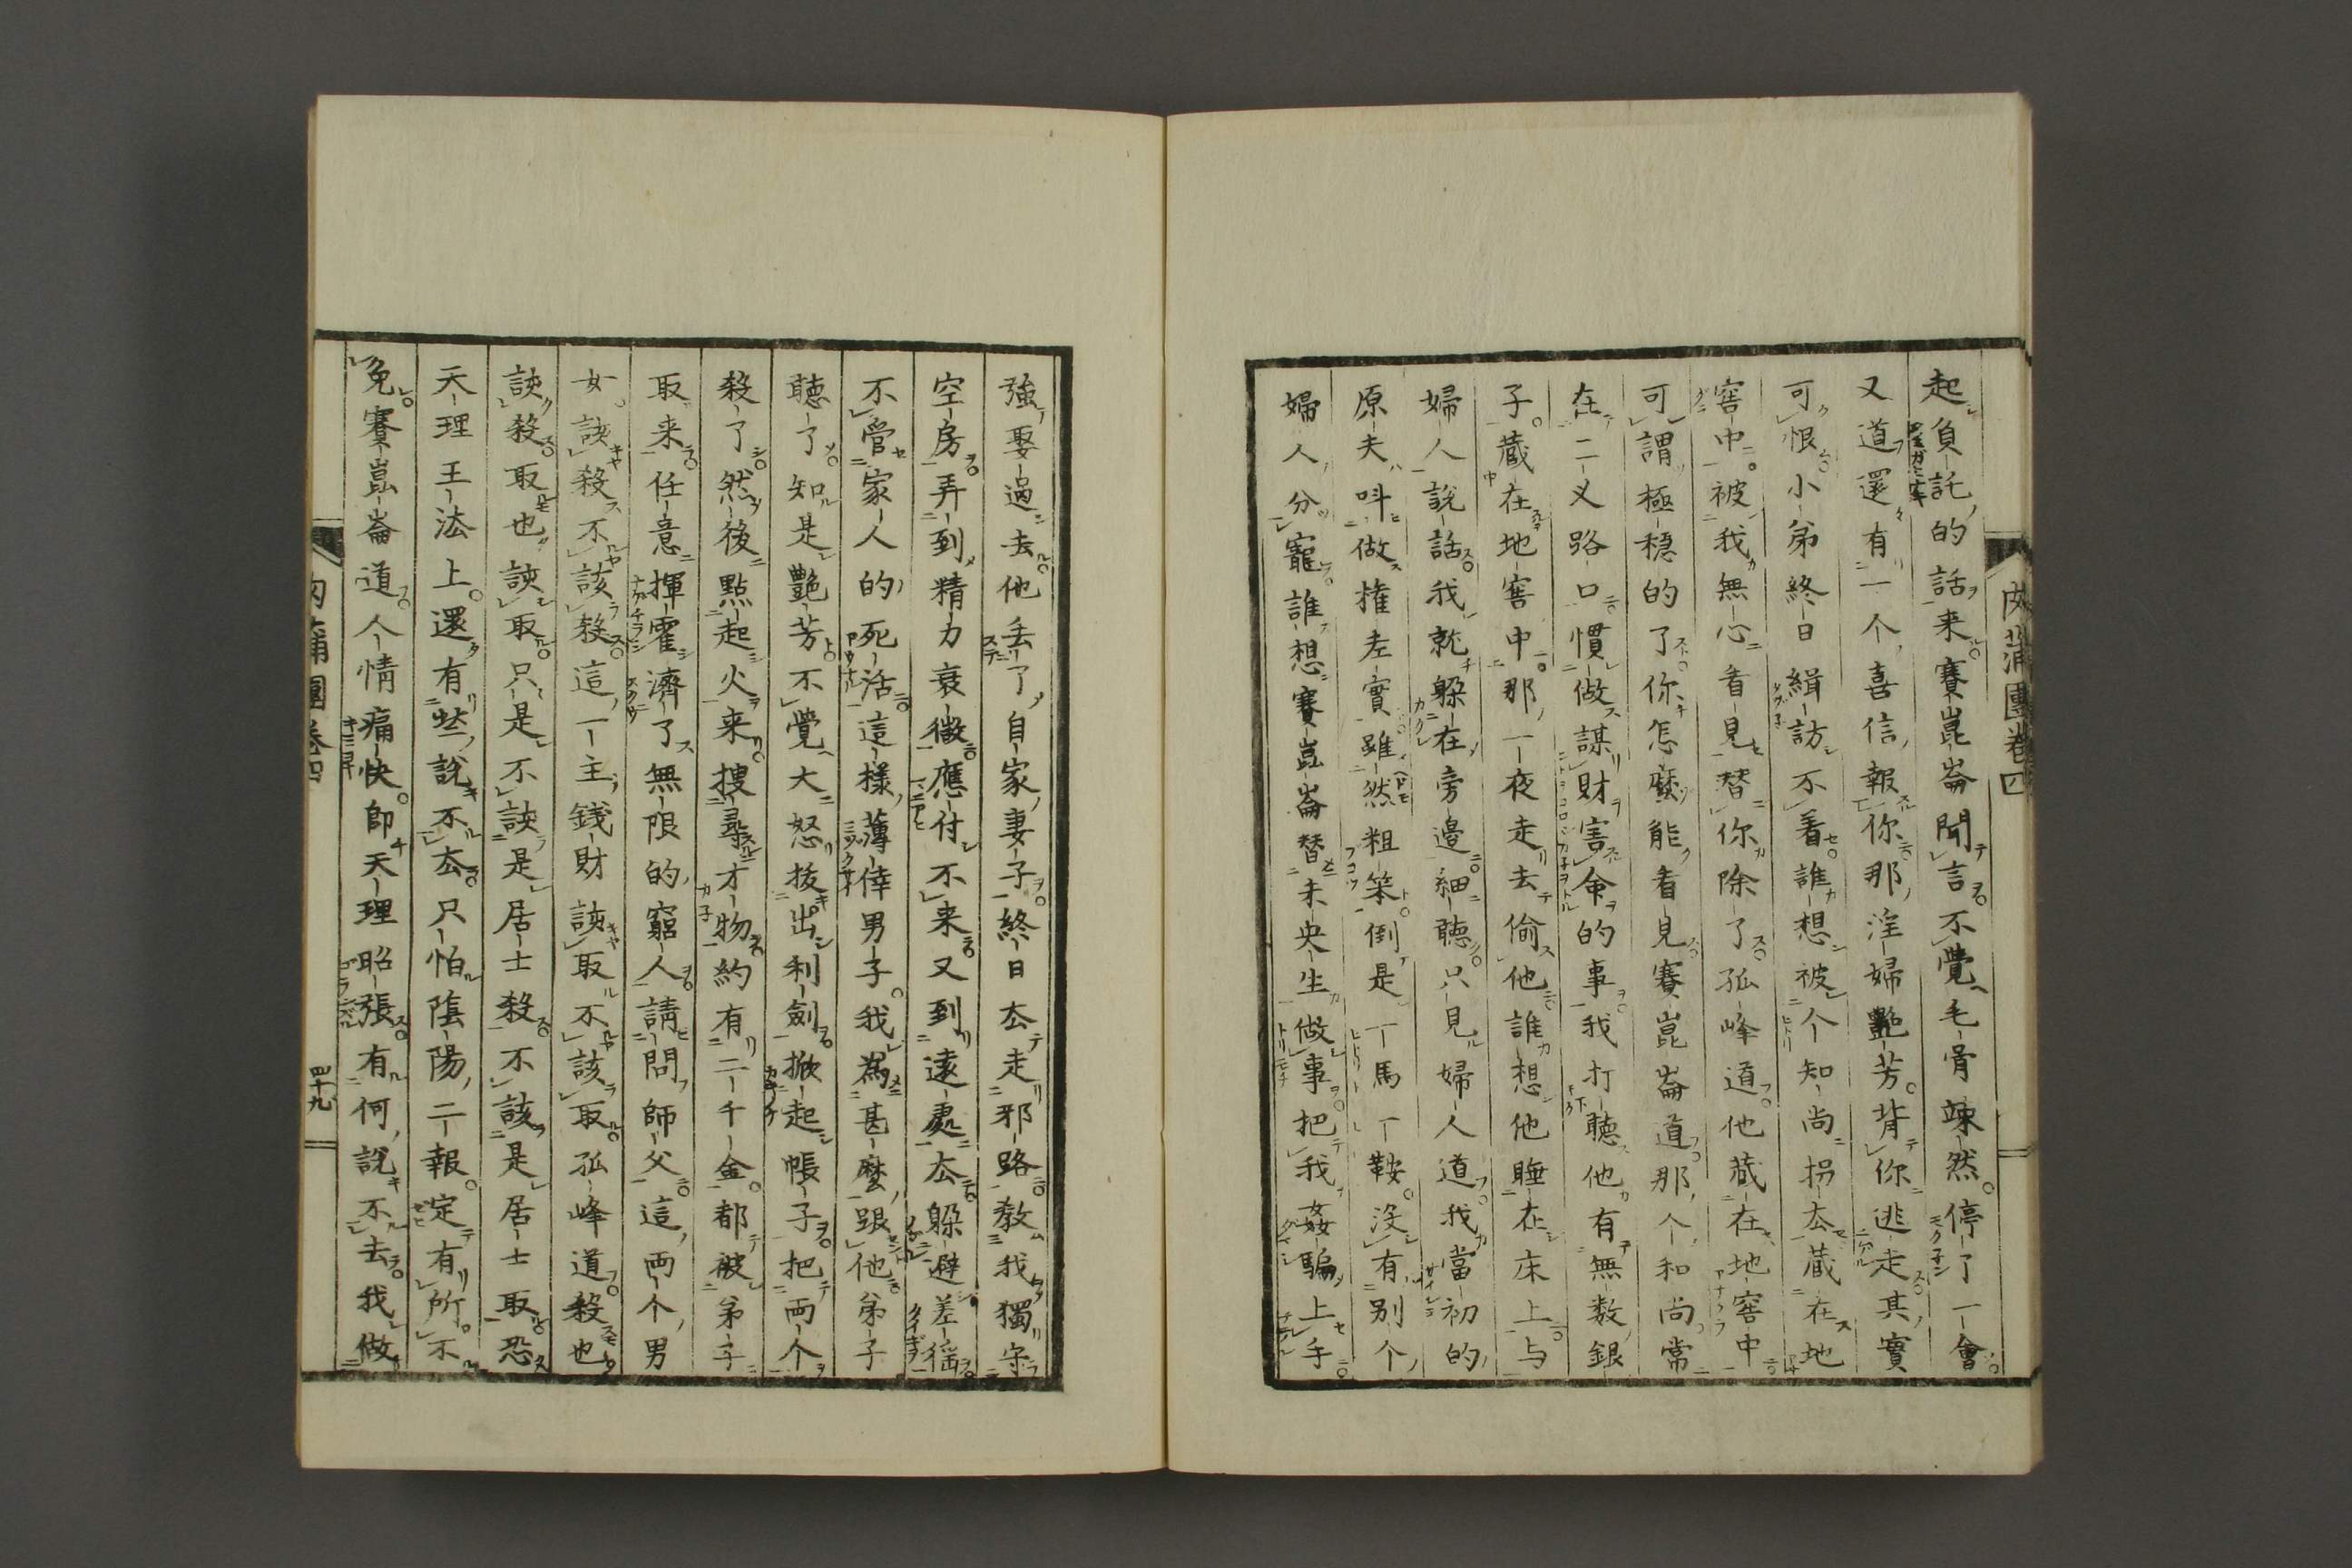 肉蒲團卷四
起負託的話来賽崑崙聞言不覺毛骨竦然停了一會
又道還有一个喜信報你那淫婦艷芳背你逃走其實
可恨小弟終日緝訪不着誰想被个和尚拐去藏在地
窖中被我無心看見替你除了孤峰道他藏在地窖中
可謂極穩的了你怎麼能看見賽崑崙道那个和尚常
在二义路口慣做謀財害命的事我打聽他有無数銀
子藏在地窖中那一夜走去偷他誰想他睡在床上与
婦人說話我就躲在旁邉細聽只見婦人道我當初的
原夫呌做權老實雖然粗笨倒是一馬一鞍没有别个
婦人分寵誰想賽崑崙替未央生做事把我姦騙上手
強娶過去他丢了自家妻子終日去走邪路教我獨守
空房弄到精力衰微應付不来又到遠處去躲避差徭
不管家人的死活這樣薄倖男子我為甚麼跟他弟子
聽了知是艷芳不覺大怒拔出利劍掀起帳子把両个
殺了然後點起火来捜尋才物約有二千金都被弟子
取来任意揮霍濟了無限的窮人請問師父這両个男
女該殺不該殺這一主錢財該取不該取孤峰道殺也
該殺取也該取只是不該是居士殺不該是居士取恐
天理王法上還有些說不去只怕陰陽二報定有所不
免賽崑崙道人情痛快即天理昭張有何說不去我做
肉蒲團卷四
四十九